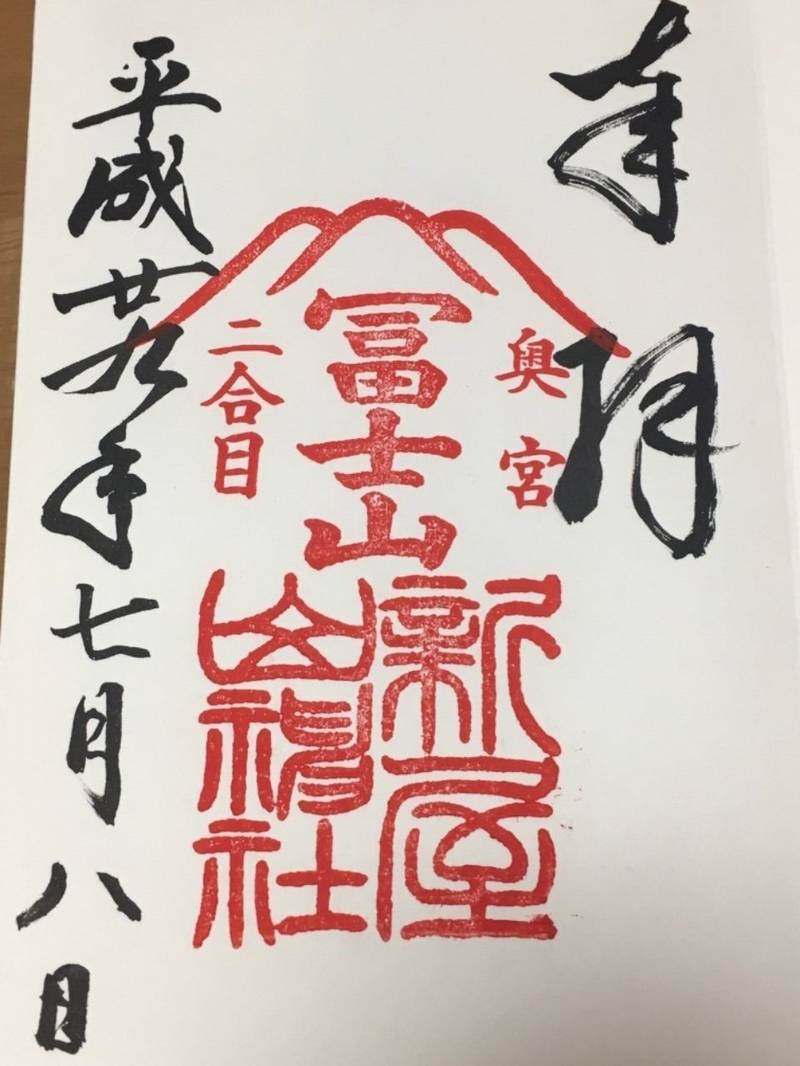 奉拝
奥宮
冨士山
二合目
新屋
山神社
平成廿九年七月八日